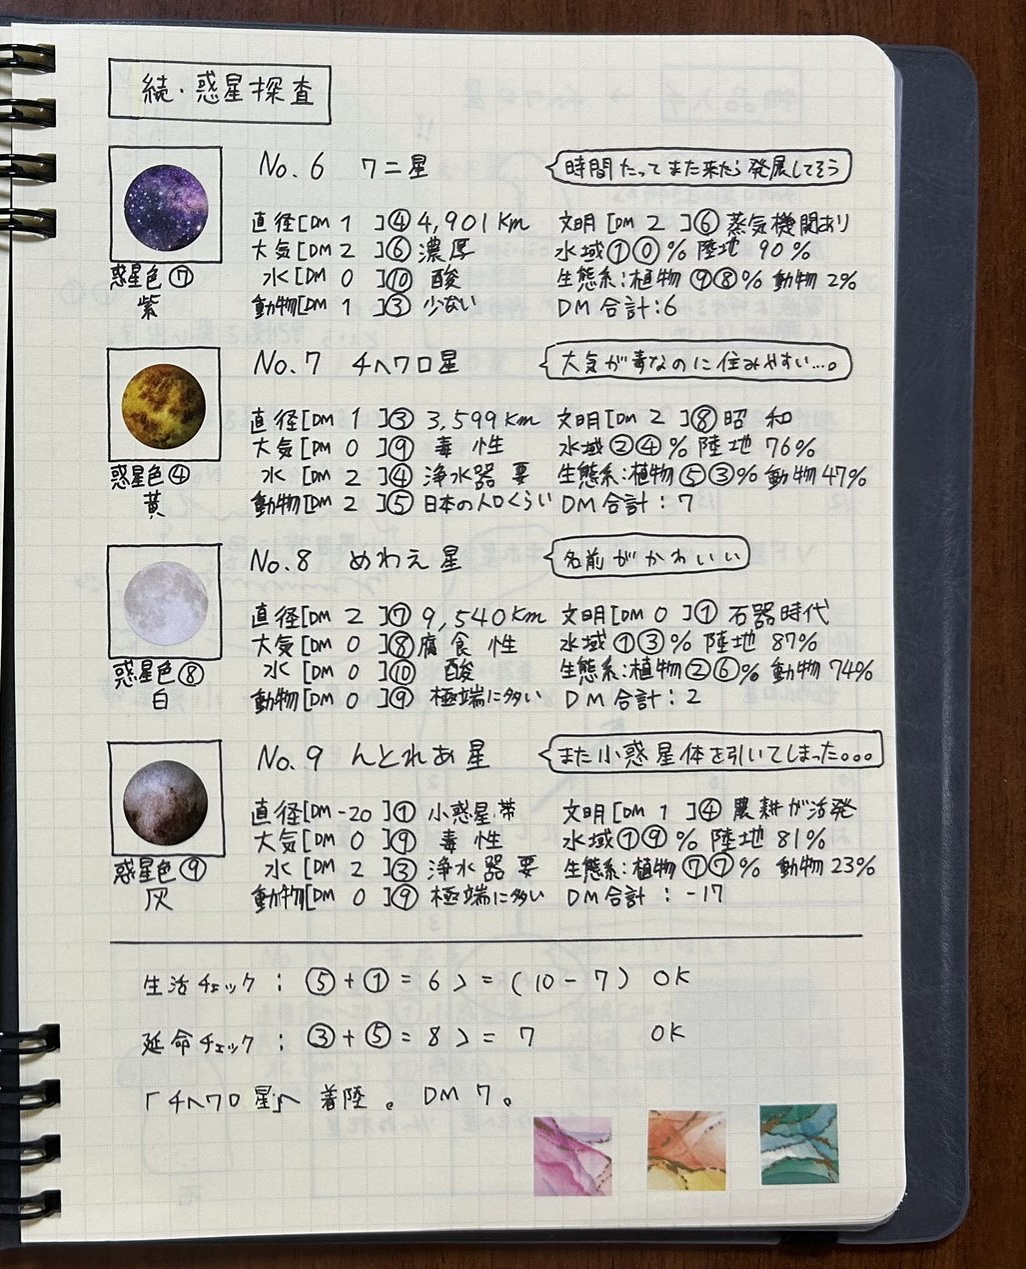 続・惑星探査
No.6 ワニ星 時間たってまた来たら発展してそう
直径[DM 1 ]④ 4,901Km 文明[DM 2 ]⑥ 蒸気機関あり
大気[DM 2 ]⑥ 濃厚 水域①⓪% 陸地 90%
惑星色⑦ 水[DM 0 ]⑩ 酸 生態系:植物⑨⑧% 動物2%
紫 動物[DM 1 ]③ 少ない DM合計:6
No.7 チヘワロ星 大気が毒なのに住みやすい…。
直径[DM 1 ]③ 3,599Km 文明[DM 2 ]⑧ 昭和
大気[DM 0 ]⑨ 毒性 水域②④% 陸地 76%
惑星色④ 水[DM 2 ]④ 浄水器要 生態系:植物⑤③% 動物47%
黄 動物[DM 2 ]⑤ 日本の人口くらい DM合計:7
No.8 めわえ星 名前がかわいい
直径[DM 2 ]⑦ 9,540Km 文明[DM 0 ]① 石器時代
大気[DM 0 ]⑧ 腐食性 水域①③% 陸地 87%
惑星色⑧ 水[DM 0 ]⑩ 酸 生態系:植物②⑥% 動物74%
白 動物[DM 0 ]⑨ 極端に多い DM合計:2
No.9 んとれあ星 また小惑星体を引いてしまった。。。
直径[DM-20 ]① 小惑星帯 文明[DM 1 ]④ 農耕が活発
大気[DM 0 ]⑨ 毒性 水域①⑨% 陸地 81%
惑星色⑨ 水[DM 2 ]③ 浄水器要 生態系:植物⑦⑦% 動物23%
灰 動物[DM 0 ]⑨ 極端に多い DM合計:-17
生活チェック:⑤+①=6>=(10-7) OK
延命チェック:③+⑤=8>=7 OK
「チヘワロ星」へ着陸。DM7。